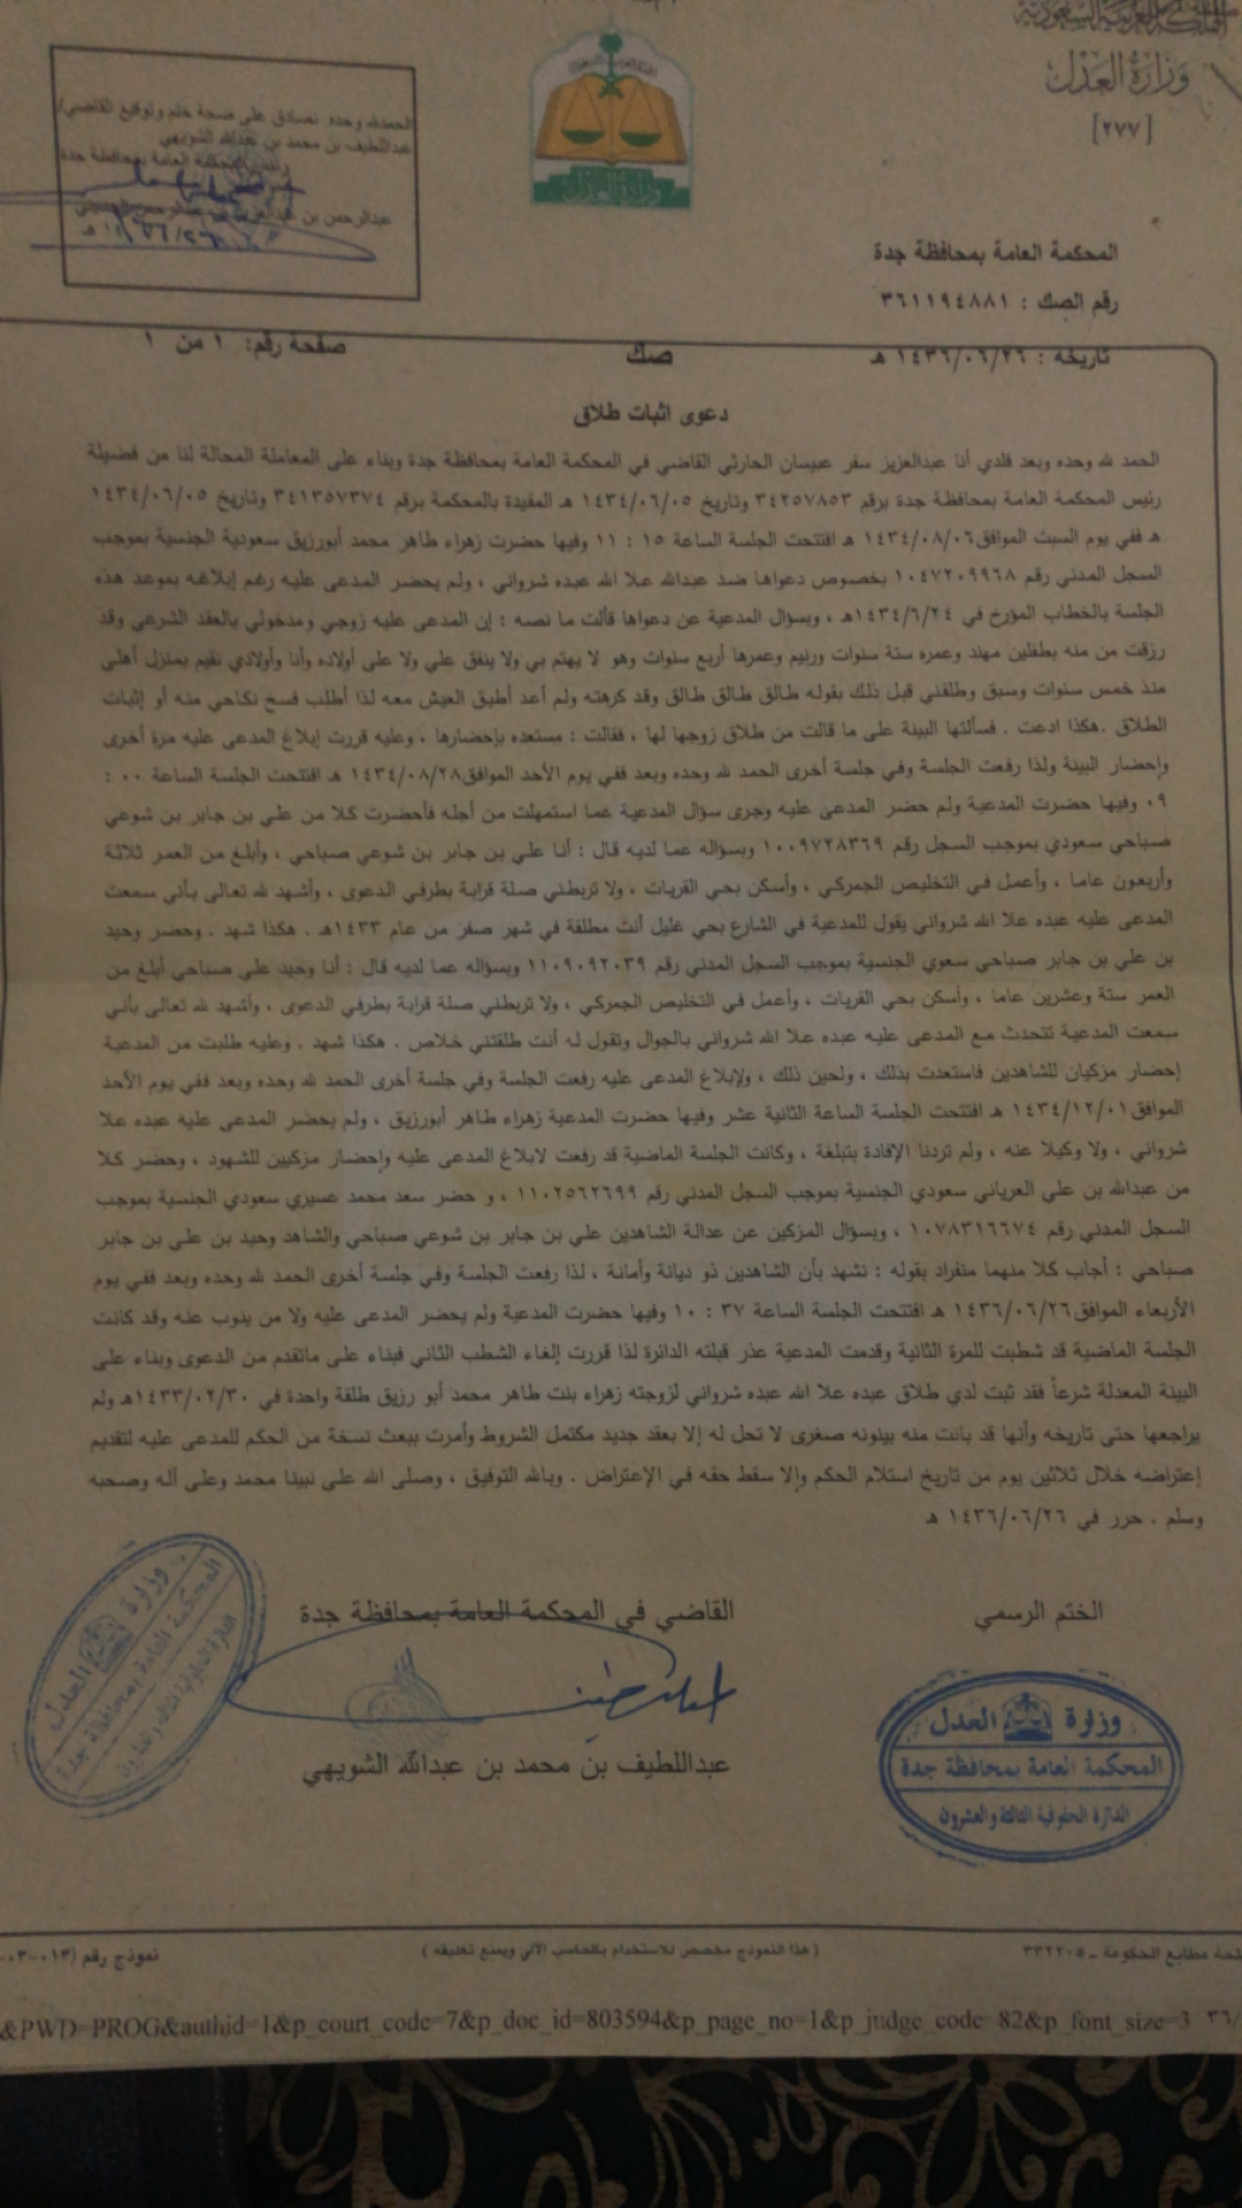 المملكة العربية السعودية
وزارة العدل
[٢٧٧]
وزارة العدل
الحمدلله وحده نصادق على صحة ختم وتوقيع القاضي/
عبداللطيف بن محمد بن عبدالله الشويهي
رئيس المحكمة العامة بمحافظة جدة
عبدالرحمن بن عبدالعزيز
المحكمة العامة بمحافظة جدة
رقم الصك : ٣٦١١٩٤٨٨١
تاريخه : ١٤٣٦/٠٦/٢٦ هـ
صك
صفحة رقم: ١ من ١
دعوى اثبات طلاق
الحمد لله وحده وبعد فلدي أنا عبدالعزيز سفر عبيسان الحارثي القاضي في المحكمة العامة بمحافظة جدة وبناء على المعاملة المحالة لنا من فضيلة
رئيس المحكمة العامة بمحافظة جدة برقم ٣٤٢٥٧٨٥٣ وتاريخ ١٤٣٤/٠٦/٠٥ هـ المقيدة بالمحكمة برقم ٣٤١٣٥٧٣٧٤ وتاريخ ١٤٣٤/٠٦/٠٥
هـ ففي يوم السبت الموافق١٤٣٤/٠٨/٠٦ هـ افتتحت الجلسة الساعة ١٥ : ١١ وفيها حضرت زهراء طاهر محمد أبورزيق سعودية الجنسية بموجب
السجل المدني رقم ١٠٤٧٢٠٩٩٦٨ بخصوص دعواها ضد عبدالله علا الله عبده شرواني ، ولم يحضر المدعى عليه رغم إبلاغه بموعد هذه
الجلسة بالخطاب المؤرخ في ١٤٣٤/٦/٢٤هـ ، وبسؤال المدعية عن دعواها قالت ما نصه : إن المدعى عليه زوجي ومدخولي بالعقد الشرعي وقد
رزقت من منه بطفلين مهند وعمره ستة سنوات ورنيم وعمرها أربع سنوات وهو لا يهتم بي ولا ينفق علي ولا على أولاده وأنا وأولادي نقيم بمنزل أهلي
منذ خمس سنوات وسبق وطلقني قبل ذلك بقوله طالق طالق طالق وقد كرهته ولم أعد أطيق العيش معه لذا أطلب فسخ نكاحي منه أو إثبات
الطلاق .هكذا ادعت . فسألتها البينة على ما قالت من طلاق زوجها لها ، فقالت : مستعده بإحضارها ، وعليه قررت إبلاغ المدعى عليه مرة أخرى
وإحضار البينة ولذا رفعت الجلسة وفي جلسة أخرى الحمد لله وحده وبعد ففي يوم الأحد الموافق١٤٣٤/٠٨/٢٨ هـ افتتحت الجلسة الساعة ٠٠ :
٠٩ وفيها حضرت المدعية ولم حضر المدعى عليه وجرى سؤال المدعية عما استمهلت من أجله فأحضرت كلا من علي بن جابر بن شوعي
صباحي سعودي بموجب السجل رقم ١٠٠٩٧٢٨٣٦٩ وبسؤاله عما لديه قال : أنا علي بن جابر بن شوعي صباحي ، وأبلغ من العمر ثلاثة
وأربعون عاما ، وأعمل في التخليص الجمركي ، وأسكن بحي القريات ، ولا تربطني صلة قرابة بطرفي الدعوى ، وأشهد لله تعالى بأني سمعت
المدعى عليه عبده علا الله شرواني يقول للمدعية في الشارع بحي غليل أنت مطلقة في شهر صفر من عام ١٤٣٣هـ . هكذا شهد . وحضر وحيد
بن علي بن جابر صباحي سعوي الجنسية بموجب السجل المدني رقم ١١٠٩٠٩٢٠٣٩ وبسؤاله عما لديه قال : أنا وحيد علي صباحي أبلغ من
العمر ستة وعشرين عاما ، وأسكن بحي القريات ، وأعمل في التخليص الجمركي ، ولا تربطني صلة قرابة بطرفي الدعوى ، وأشهد لله تعالى بأني
سمعت المدعية تتحدث مع المدعى عليه عبده علا الله شرواني بالجوال وتقول له أنت طلقتني خلاص . هكذا شهد . وعليه طلبت من المدعية
إحضار مزكيان للشاهدين فاستعدت بذلك ، ولحين ذلك ، ولإبلاغ المدعى عليه رفعت الجلسة وفي جلسة أخرى الحمد لله وحده وبعد ففي يوم الأحد
الموافق١٤٣٤/١٢/٠١ هـ افتتحت الجلسة الساعة الثانية عشر وفيها حضرت المدعية زهراء طاهر أبورزيق ، ولم يحضر المدعى عليه عبده علا
شرواني ، ولا وكيلا عنه ، ولم تردنا الإفادة بتبلغة ، وكانت الجلسة الماضية قد رفعت لابلاغ المدعى عليه وإحضار مزكيين للشهود ، وحضر كلا
من عبدالله بن علي العرياني سعودي الجنسية بموجب السجل المدني رقم ١١٠٢٥٦٢٦٩٩ ، و حضر سعد محمد عسيري سعودي الجنسية بموجب
السجل المدني رقم ١٠٧٨٣١٦٦٧٤ ، وبسؤال المزكين عن عدالة الشاهدين علي بن جابر بن شوعي صباحي والشاهد وحيد بن علي بن جابر
صباحي : أجاب كلا منهما منفراد بقوله : نشهد بأن الشاهدين ذو ديانة وأمانة ، لذا رفعت الجلسة وفي جلسة أخرى الحمد لله وحده وبعد ففي يوم
الأربعاء الموافق١٤٣٦/٠٦/٢٦ هـ افتتحت الجلسة الساعة ٣٧ : ١٠ وفيها حضرت المدعية ولم يحضر المدعى عليه ولا من ينوب عنه وقد كانت
الجلسة الماضية قد شطبت للمرة الثانية وقدمت المدعية عذر قبلته الدائرة لذا قررت إلغاء الشطب الثاني فبناء على ماتقدم من الدعوى وبناء على
البينة المعدلة شرعاً فقد ثبت لدي طلاق عبده علا الله عبده شرواني لزوجته زهراء بنت طاهر محمد أبو رزيق طلقة واحدة في ١٤٣٣/٠٢/٣٠هـ ولم
يراجعها حتى تاريخه وأنها قد بانت منه بينونه صغرى لا تحل له إلا بعقد جديد مكتمل الشروط وأمرت ببعث نسخة من الحكم للمدعى عليه لتقديم
إعتراضه خلال ثلاثين يوم من تاريخ استلام الحكم وإلا سقط حقه في الإعتراض . وبالله التوفيق ، وصلى الله على نبينا محمد وعلى آله وصحبه
وسلم . حرر في ١٤٣٦/٠٦/٢٦ هـ
الختم الرسمي
القاضي في المحكمة العامة بمحافظة جدة
عبداللطيف بن محمد بن عبدالله الشويهي
وزارة العدل
المحكمة العامة بمحافظة جدة
الدائرة الحقوقية الثالثة والعشرون
وزارة العدل
المحكمة العامة بمحافظة جدة
الدائرة الحقوقية الثالثة والعشرون
مطابع الحكومة - ٣٣٢٢٠٥
( هذا النموذج مخصص للاستخدام بالحاسب الآلي ويمنع تغليفه )
نموذج رقم (١٣-٠٣-٠
&PWD=PROG&authid=1&p_court_code=7&p_doc_id=803594&p_page_no=1&p_judge_code=82&p_font_size=3 ٣٦/